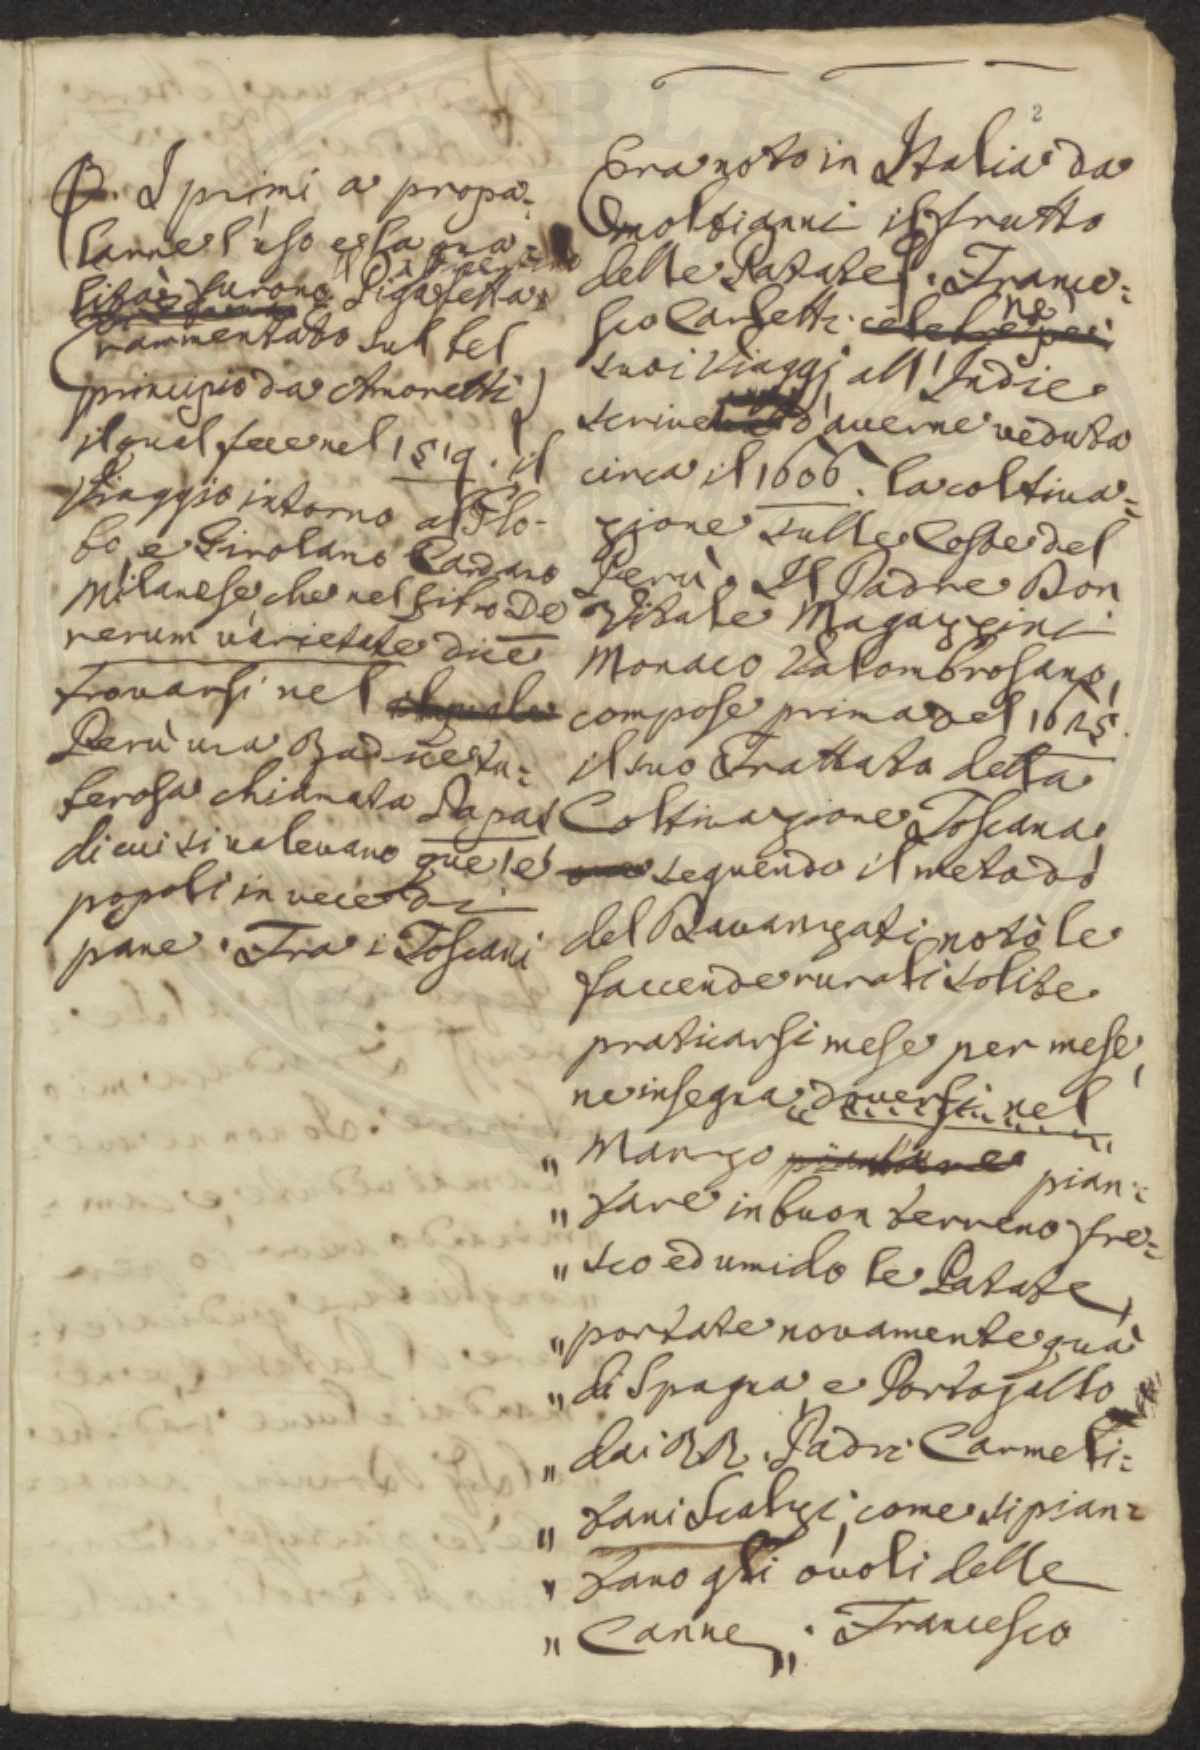 2
P. I primi a propa-
larne l'uso e la qua-
lità furono il Pigafetta
(rammentato sul bel
principio da Amoretti)
il qual fece nel 1519. il
Viaggio intorno al Glo-
bo, e Girolamo Cardano
Milanese che nel Libro De
rerum varietate dice
trovarsi nel
Perù una Radice tu-
berosa chiamata Papas
di cui si valevano quei
popoli in vece di
pane. Tra i Toscani
Era noto in Italia da
molti anni il frutto
delle Patate. France-
sco Carletti ne
suoi Viaggi all'Indie
scrive d'averne veduta
circa il 1606. la coltiva-
zione sulle Coste del
Perù. Il Padre Don
Vitale Magazzini
Monaco Valombrosano,
compose prima del 1625.
il suo Trattato della
Coltivazione Toscana,
seguendo il metodo
del Davanzati notò le
faccende rurali solite
praticarsi mese per mese,
ne insegna doversi nel
" Marzo pian-
" tare in buon terreno fre-
" sco ed umido le Patate,
" portate novamente quà
" di Spagna, e Portogallo
" dai RR. Padri Carmeli-
" tani Scalzi, come si pian-
" tano gli ovoli delle
" Canne". Francesco